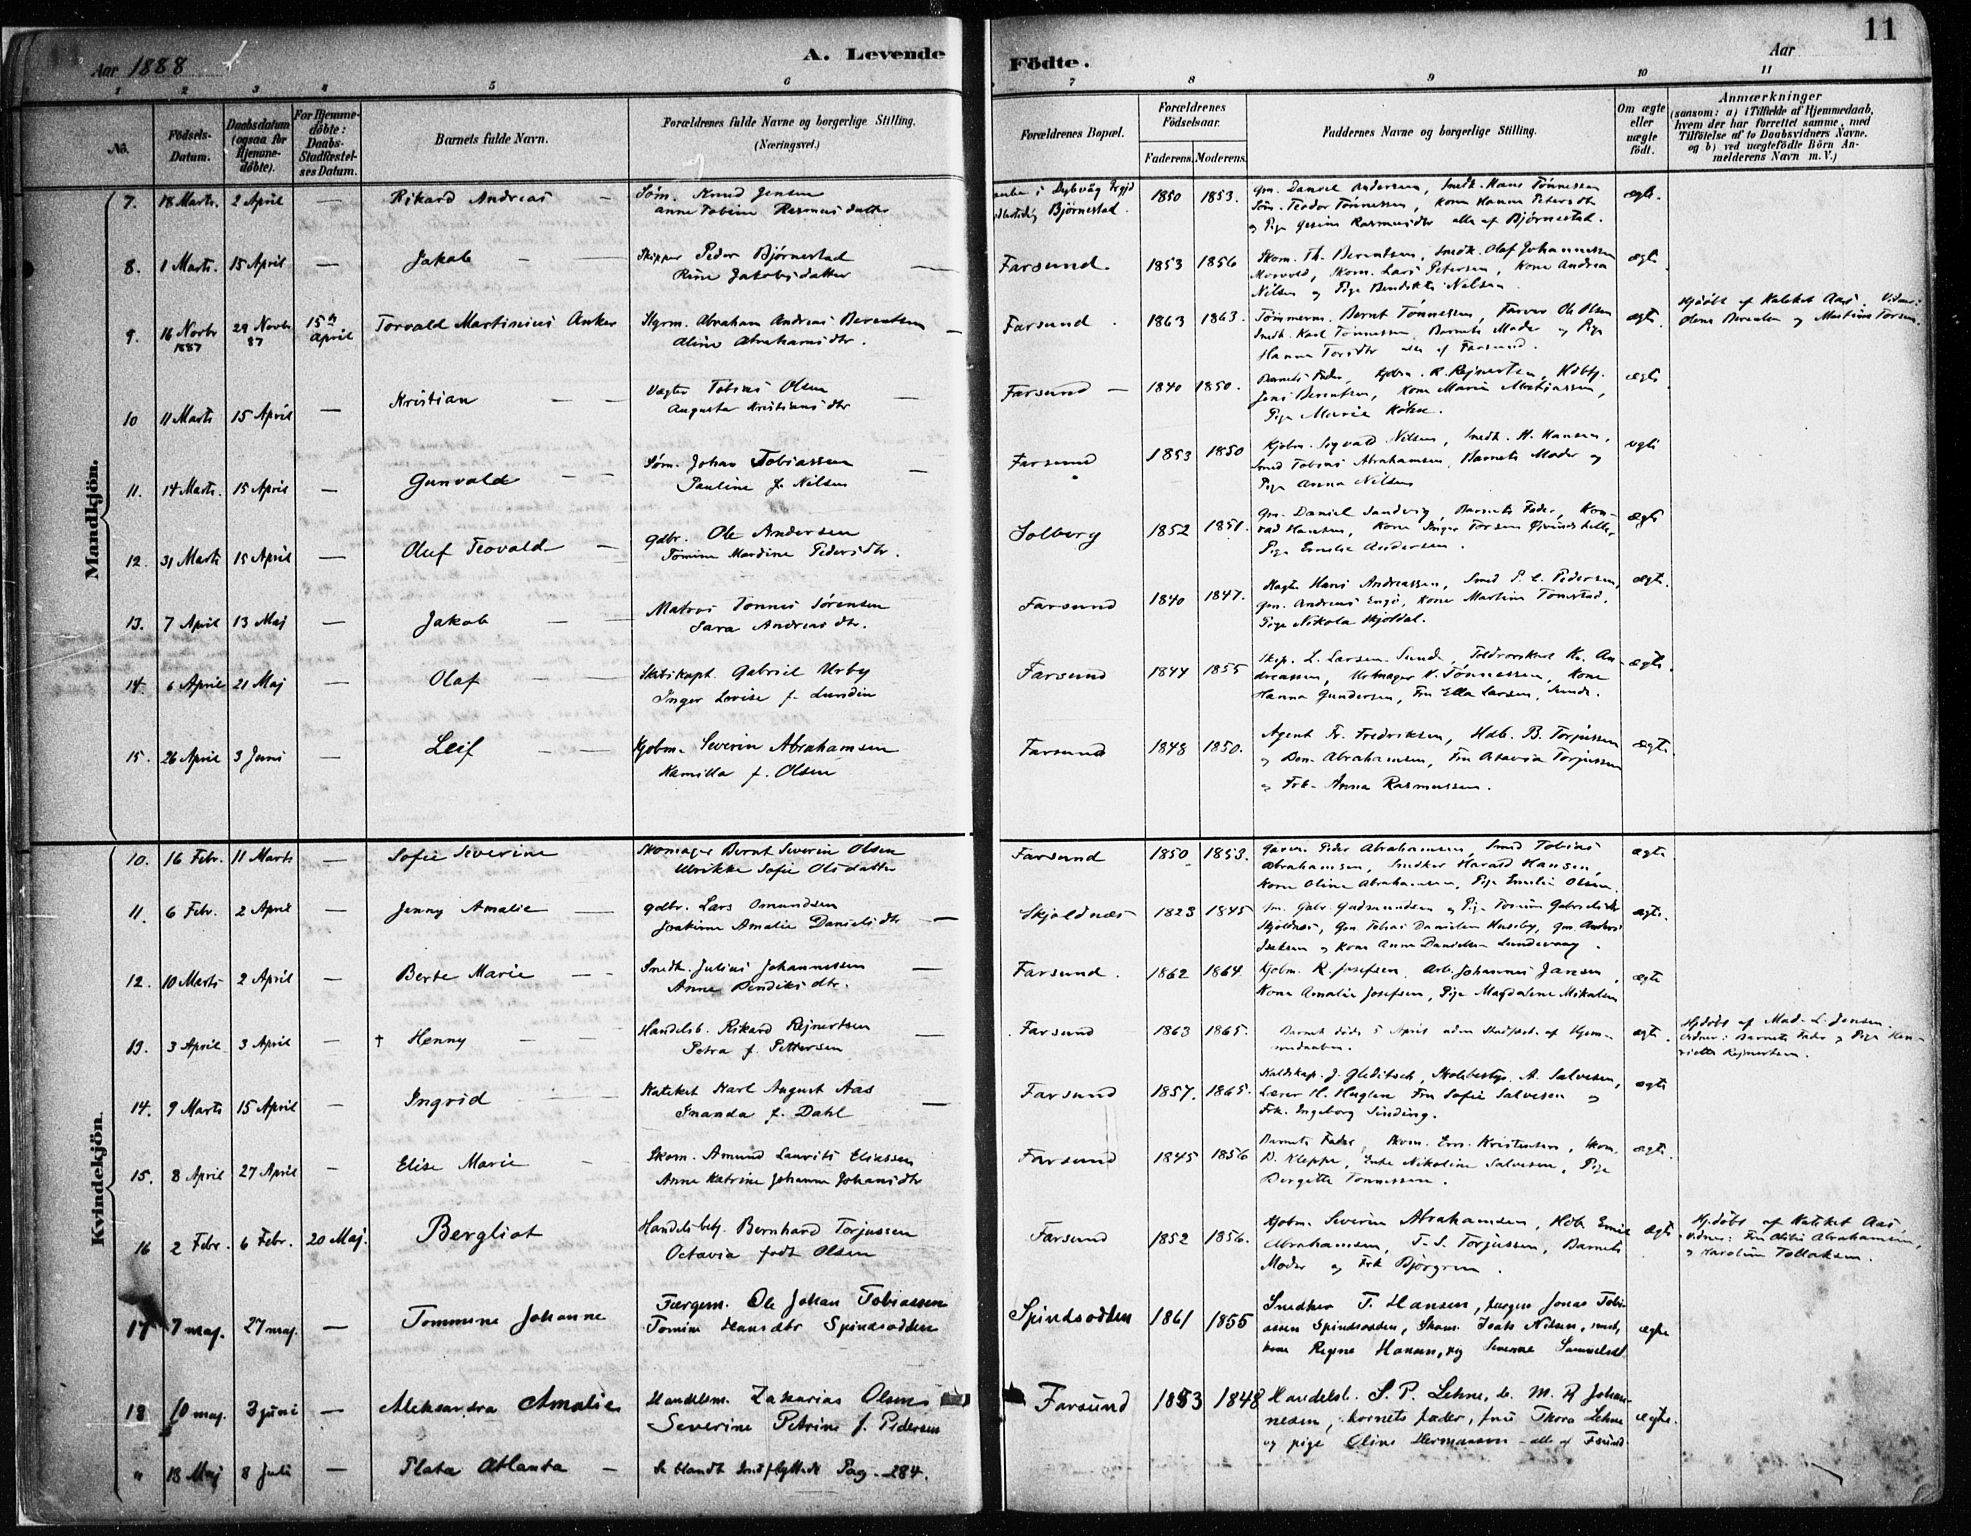 11
Aar 1888
A. Levende Födte.
Aar
1 2 3 4 5 6 7 8 9 10 11
No.
Födsels-Datum.
Daabsdatum (ogsaa for Hjemmedöbte).
For Hjemmedöbte: Daabs-Stadfæstelses Datum.
Barnets fulde Navn.
Forældrenes fulde Navne og borgerlige Stilling. (Næringsvei.)
Forældrenes Bopæl.
Forældrenes Födselsaar.
Faderens. Moderens.
Faddernes Navne og borgerlige Stilling.
Om ægte eller uægte födt.
Anmærkninger
(saasom: a) i Tilfælde af Hjemmedaab, hvem der har forrettet samme, med Tilföielse af to Daabsvidners Navne, og b) ved uægtefödte Börn Anmelderens Navn m. V.)
Mandkjön.
7. 18 Marts. 2 April — Rikard Andreas — Søm. Knud Jensen
Anne Tobine Rasmusdatter
Bjørnestad 1850 1853. Gm. Daniel Andersen, Snedk. Hans Tønnessen
Søm. Teodor Tønnessen, Kone Hanna Petersdtr
og Pige Gesine Rasmusdtr alle af Bjørnestad. ægte.
8. 1 Marts. 15 April — Jakob — Skipper Peder Bjørnestad
Rine Jakobsdatter
Farsund. 1853 1856 Skom. Th. Berentsen, Snedk. Olaf Johannessen
Skom. Lars Petersen, Kone Andrea
Nilsen og Pige Bendikte Nilsen. ægte
9. 16 Novbr 1887 29 Novbr 87 15de April Torvald Martinius Anker Styrm. Abraham Andreas Berentsen
Aline Abrahamsdtr.
Farsund. 1863 1863. Tømmerm. Bernt Tønnessen, Farver Ole Olsen
Snedk. Karl Tønnessen, Barnets Moder og Pige
Hanna Torsdtr alle af Farsund. ægte. Hjdöbt af Kateket Aas. Vidner:
Olene Berentsen og Martine Torsen.
10 11 Marts 15 April — Kristian — Vægter Tobias Olsen
Augusta Kristiansdtr
Farsund — 1840 1850. Barnets Fader, Kjøbm. R. Rejnertsen, Hdbtj.
Jens Berentsen, Kone Marie Mathiassen,
Pige Marie ægte
11. 14 Marts. 15 April — Gunvald — Søm. Johan Tobiassen
Pauline f. Nilsen
Farsund 1853 1850 Kjøbm. Sigvald Nilsen, Snedk. H. Hansen,
Smed Tobias Abrahamsen, Barnets Moder og
Pige Anna Nilsen ægte
12. 31 Marts 15 April — Oluf Teovald — Gdbr. Ole Andersen
Tomine Mardine Pedersdtr.
Solberg 1852 1851. Gm. Daniel Sandvig, Barnets Fader, Kon-
rad Hansen, Kone Inger Torsen
Pige Emilie Andersen. ægte
13. 7 April 13 Maj — Jakob — Matros Tønnes Sørensen
Sara Andreasdtr.
Farsund 1840 1847. Hans Andreassen, Smed P. C. Pedersen,
Gm. Andreas Engø, Kone Martine Tomstad,
Pige Nikola Skjoldal. ægte.
14. 6 April 21 Maj — Olaf — Skibskapt. Gabriel Urby
Inger Lovise f. Lundin
Farsund 1844 1855 Skip. L. Larsen Sunde, Kr. An-
dreassen, Urmager N. Tønnessen, Kone
Hanna Gundersen, Fru Ella Larsen, Sunde. ægte.
15. 26 April 3 Juni — Leif — Kjøbm. Severin Abrahamsen
Kamilla f. Olsen
Farsund 1848 1850. Agent Fr. Fredriksen, Hdb. B. Torjussen
og Abrahamsen, Fru Octavia Torjussen
og Frk. Anna Rasmussen. ægte.
Kvindekjön
10. 16 Febr. 11 Marts — Sofie Severine Skomager Bernt Severin Olsen
Ulrikke Sofie Olsdatter
Farsund 1850 1853. Peder Abrahamsen, Smed Tobias
Abrahamsen, Snedker Harald Hansen,
Kone Oline Abrahamsen, Pige Emilie Olsen. ægte
11. 6 Febr. 2 April — Jenny Amalie — Gdbr. Lars Omundsen
Joakime Amalie Danielsdtr —
Skjoldnæs 1823 1845 Gabr. Gudmundsen og Pige Tomine Gabrielsdtr
Skjoldnæs, Gm. Tobias Danielsen Huseby, Gm. Anders
Isaksen og Kone Anne Danielsen Lundevaag. ægte.
12. 10 Marts 2 April — Berte Marie — Snedk. Julius Johannessen
Anne Bendiksdtr.
Farsund. 1862 1864. Kjøbm. R. Josefsen, Arb. Johannes Jansen,
Kone Amalie Josefsen, Pige Magdalene Mikalsen ægte
13. 3 April 3 April — † Henny — Handelsb. Rikard Rejnertsen
Petra f. Pettersen
Farsund 1863 1865. Barnet døde 5 April uden Stadfæst. af Hjem-
medaaben. ægte. Hjdöbt af Mad. L. Jensen.
Vidner: Barnets Fader og Pige Hen-
riette Rejnertsen.
14. 9 Marts 15 April — Ingrid — Kateket Karl August Aas
Inanda f. Dahl
Farsund 1857. 1865. J. Gleditsch, Skolebestyr. A. Salvesen,
Lærer H. Fru Sofie Salvesen og
Frk. Ingeborg Sinding. ægte
15. 8 April 27 April — Elise Marie — Skom. Amund Laurits Eliassen
Anne Katrine Johanne Johansdtr
Farsund 1845 1856 Barnets Fader, Skom. Kristensen, Skom.
B. Kleppe, Enke Nikoline Salvesen, Pige
Bergitte Tønnessen. ægte.
16 2 Febr. 6 Febr. 20 Maj. Bergliot Handelsbetj. Bernhard Torjussen
Octavia født Olsen
Farsund 1852 1856. Kjøbm. Severin Abrahamsen, Hdb. Emil
Abrahamsen, T. S. Torjussen, Barnets
Moder og Frk Bjørgrun. ægte Hjdöbt af Kateket Aas,
Vidner: Fru Abrahamsen,
og Karoline Tollaksen.
17 7 maj. 27 maj. — Tommine Johanne Færgem. Ole Johan Tobiassen
Tomine Hansdtr Spindsodden
Spindsodden 1861 1855 Snedker T. Hansen, Jonas Tobi-
assen Spindsodden, Skom. Isak Nilsen, smed,
kone Regine Hansen, pige Severine Samuelsdt ægte
18 10 maj. 3 juni — Aleksandra Amalie Handelsm. Zakarias Olsen
Severine Petrine f. Pedersen
Farsund 1853 1848 Handelsb. S. P. Lehne, do. M. R. Johan-
nesen, barnets fader, frue Thora Lehne
og pige Oline Hermansen — alle af Farsund ægte.
" 18 Maj 8 Juli — Plata Atlanta — Se blandt Indflyttede Pag. 284.